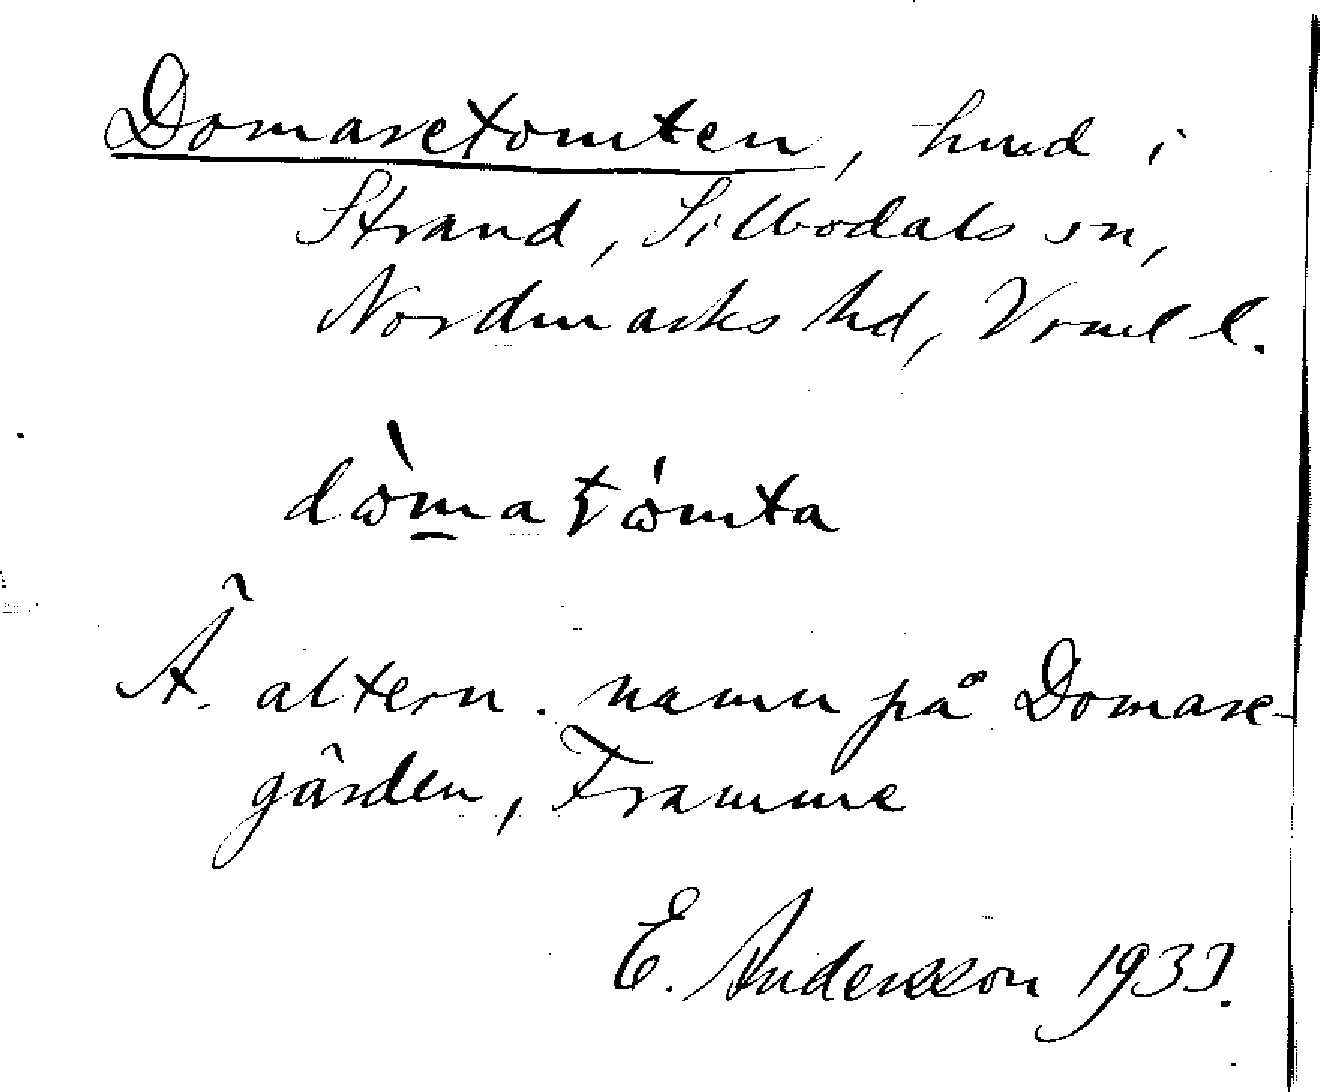 Domaretomten, hmd i
Strand, Silbodals sn,
Nordmarks hd, Vrml l.
dòmatómta
Ä. altern. namn på Domare-
gården, Framme
E. Andersson 1933.